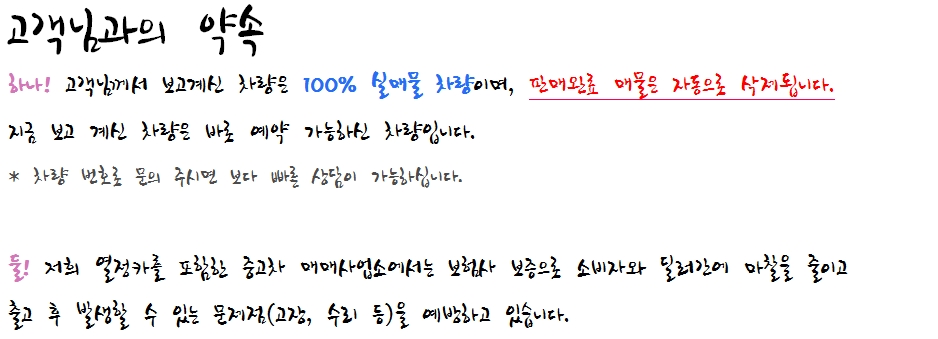 고객님과의 약속
하나! 고객님께서 보고계신 차량은 100% 실매물 차량이며, 판매완료 매물은 자동으로 삭제됩니다.
지금 보고 계신 차량은 바로 예약 가능하신 차량입니다.
* 차량 번호로 문의 주시면 보다 빠른 상담이 가능하십니다.
둘! 저희 열정카를 포함한 중고차 매매사업소에서는 보험사 보증으로 소비자와 딜러간에 마찰을 줄이고
출고 후 발생할 수 있는 문제점(고장, 수리 등)을 예방하고 있습니다.